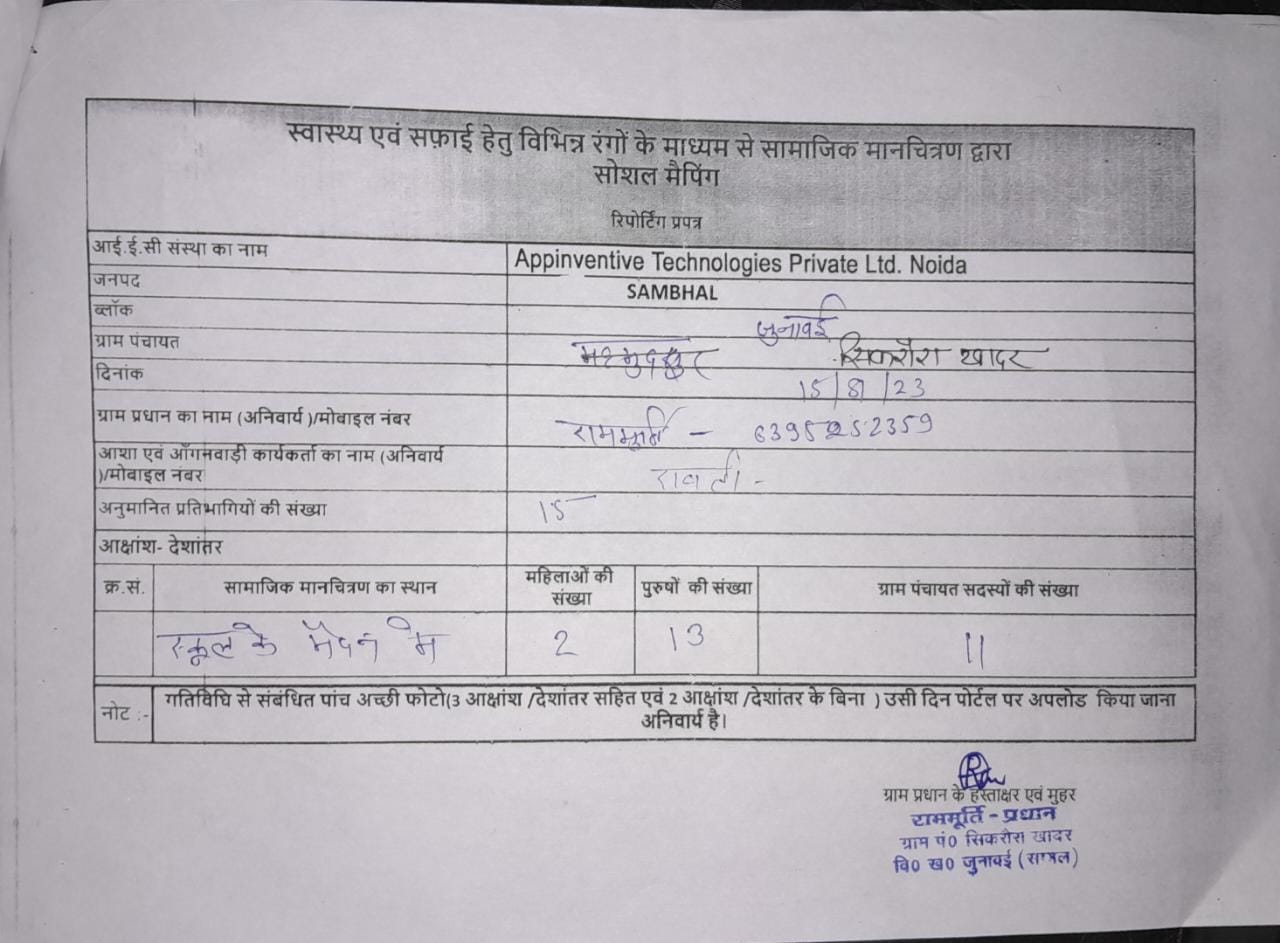 स्वास्थ्य एवं सफ़ाई हेतु विभिन्न रंगों के माध्यम से सामाजिक मानचित्रण द्वारा
सोशल मैपिंग
रिपोर्टिंग प्रपत्र
आई.ई.सी संस्था का नाम Appinventive Technologies Private Ltd. Noida
जनपद SAMBHAL
ब्लॉक जुनावई
ग्राम पंचायत सिकरौरा खादर
दिनांक 15/8/23
ग्राम प्रधान का नाम (अनिवार्य )/मोबाइल नंबर राममूर्ति - 6395252359
आशा एवं आँगनवाड़ी कार्यकर्ता का नाम (अनिवार्य
)/मोबाइल नंबर
अनुमानित प्रतिभागियों की संख्या 15
आक्षांश- देशांतर
क्र.सं. सामाजिक मानचित्रण का स्थान महिलाओं की संख्या पुरुषों की संख्या ग्राम पंचायत सदस्यों की संख्या
स्कूल के मैदन में 2 13 11
नोट :- गतिविधि से संबंधित पांच अच्छी फोटो(3 आक्षांश /देशांतर सहित एवं 2 आक्षांश /देशांतर के बिना ) उसी दिन पोर्टल पर अपलोड किया जाना
अनिवार्य है।
ग्राम प्रधान के हस्ताक्षर एवं मुहर
राममूर्ति - प्रधान
ग्राम पं0 सिकरौरा खादर
वि0 ख0 जुनावई (सम्भल)